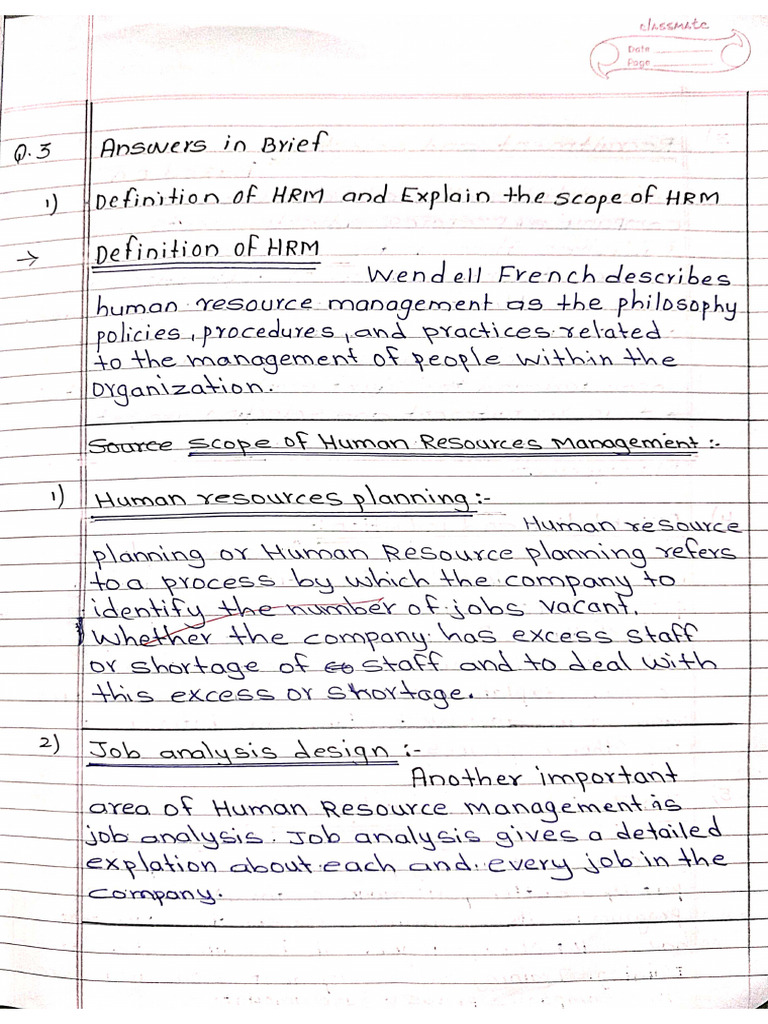 classmate
Date
Page
Q.3 Answers in Brief
1) Definition of HRM and Explain the scope of HRM
→ Definition of HRM
Wendell French describes
human resource management as the philosophy
policies, procedures, and practices related
to the management of people within the
organization.
Source scope of Human Resources Management :-
1) Human resources planning :-
Human resource
planning or Human Resource planning refers
to a process by which the company to
identify the number of jobs vacant.
Whether the company has excess staff
or shortage of staff and to deal with
this excess or shortage.
2) Job analysis design :-
Another important
area of Human Resource Management is
job analysis. Job analysis gives a detailed
explation about each and every job in the
company.